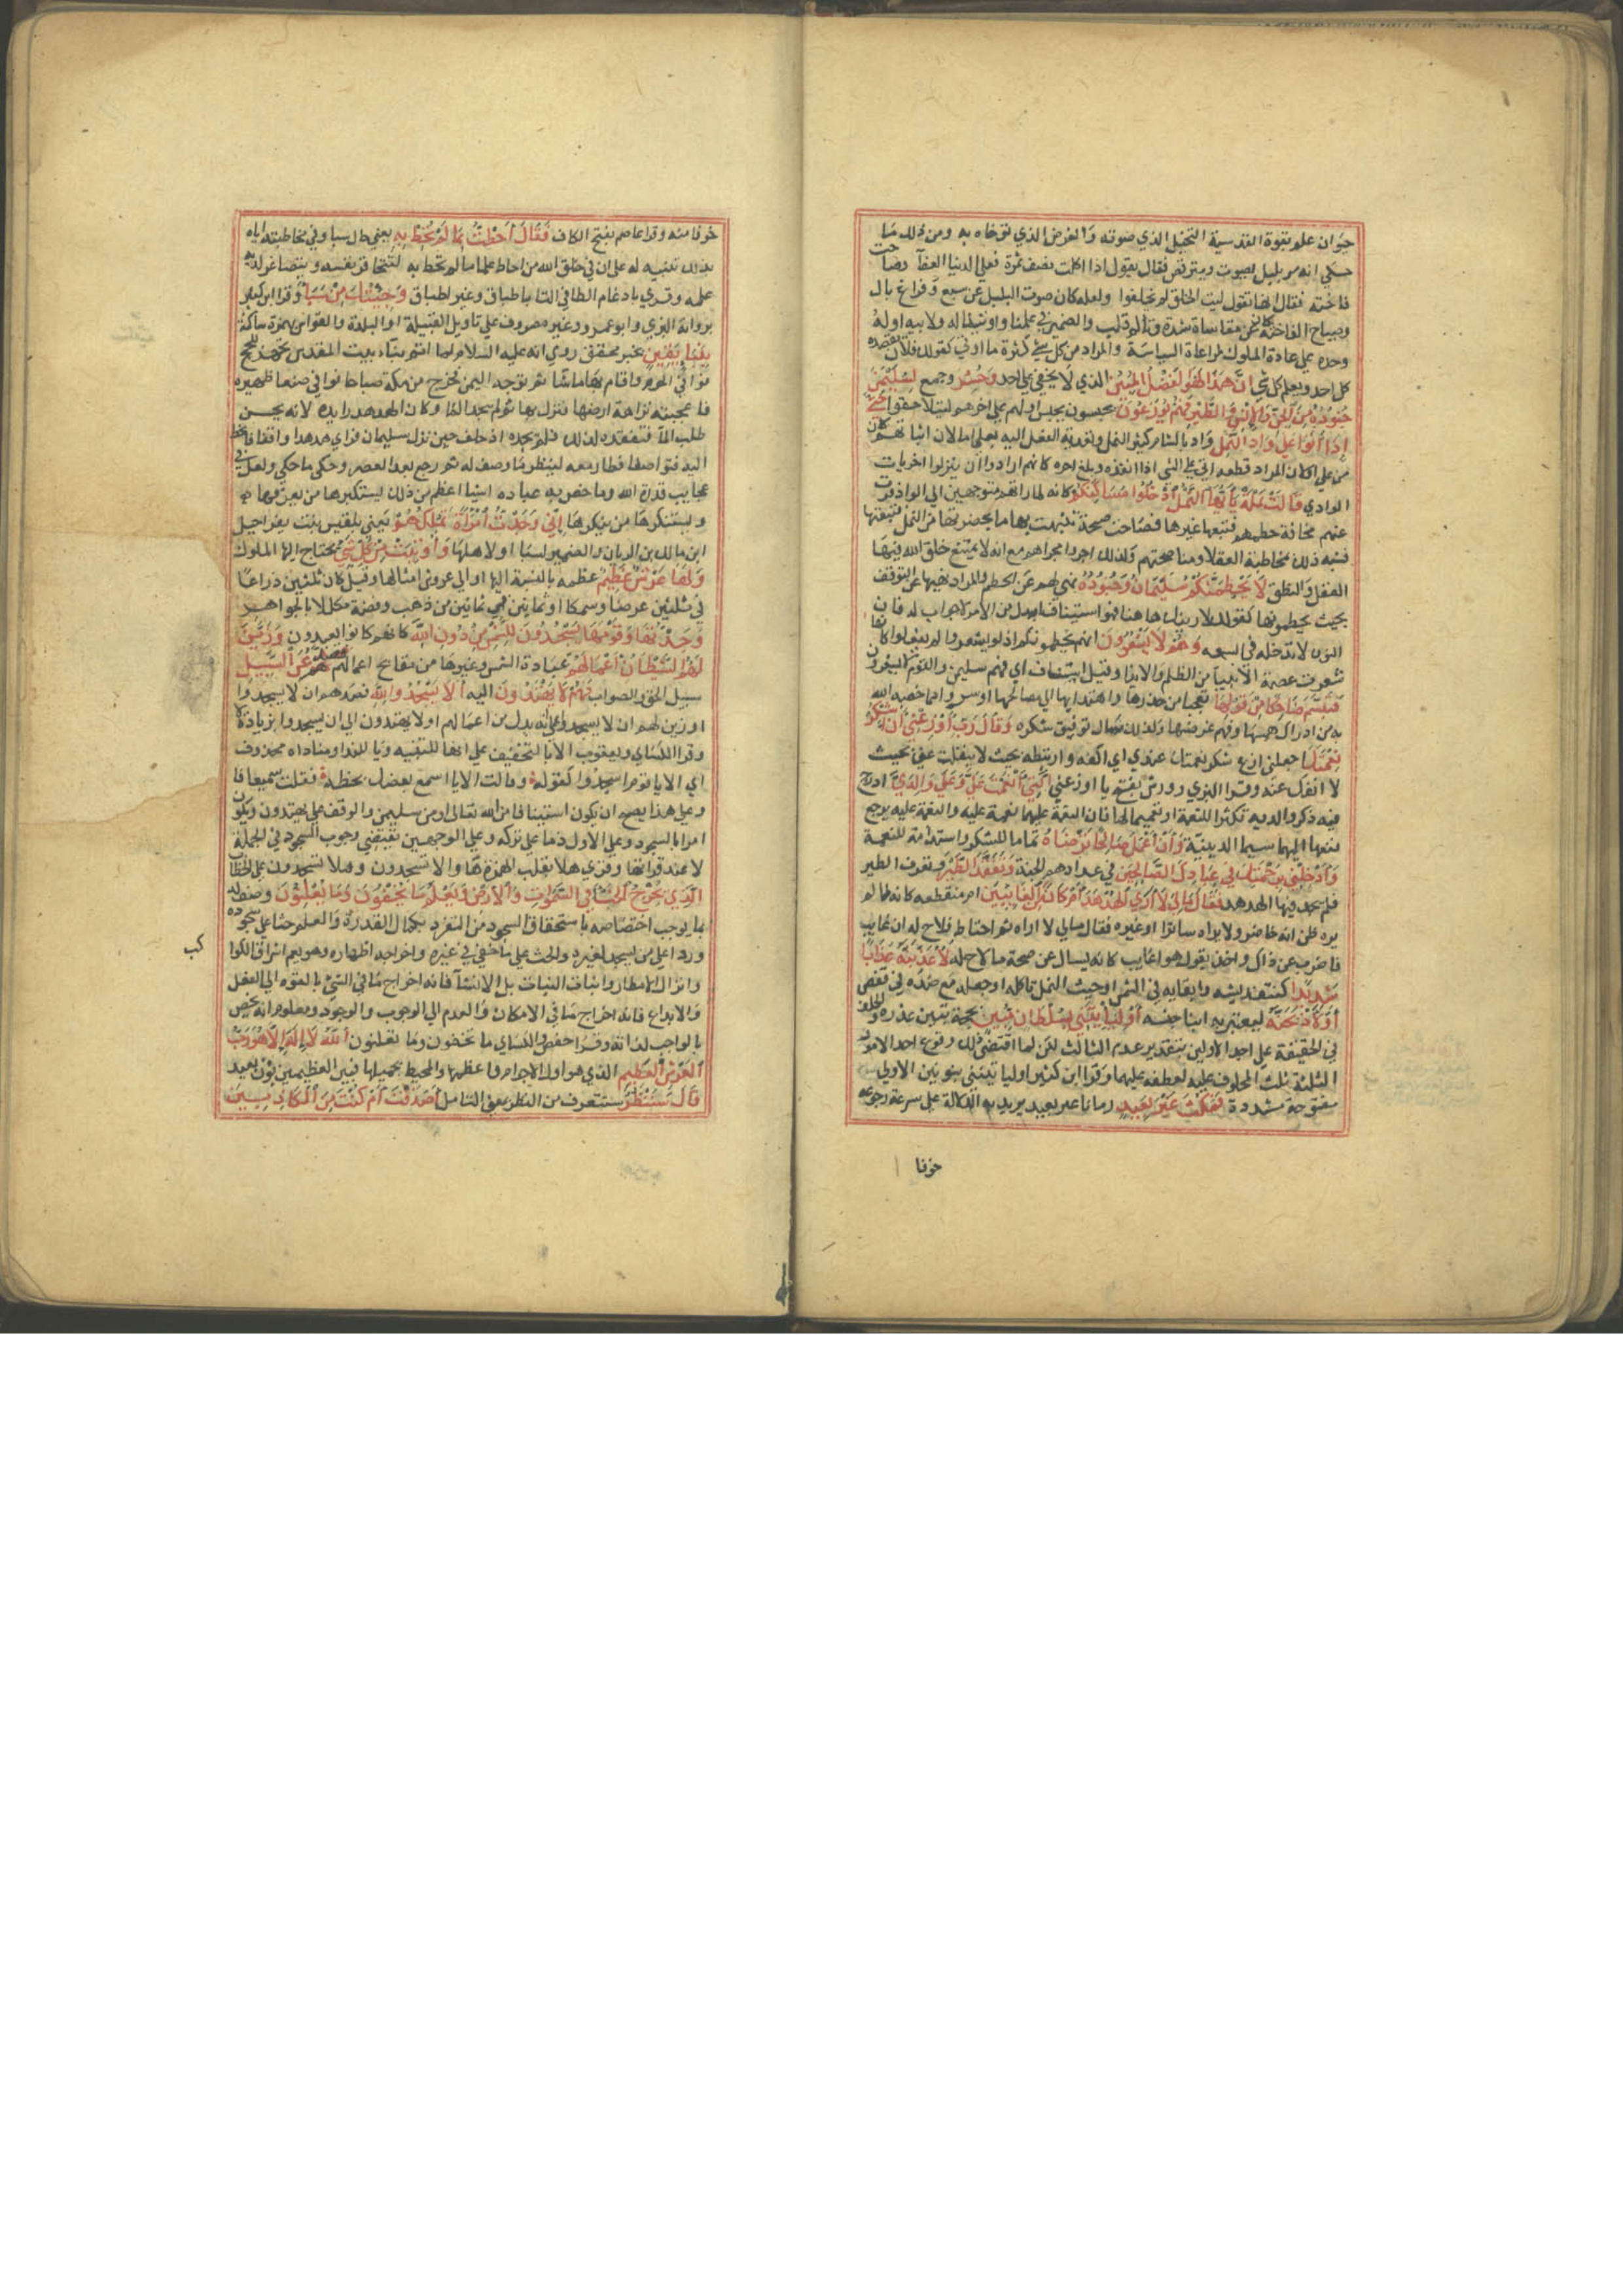 حيوان علم بقوة القدسية التخيل الذي صوته والغرض الذي توخاه به ومن ذلك ما
حكي انه مر ببلبل يصوت ويترقص فقال يقول اذا اكلت نصف تمرة فعلي الدنيا العفآ وصاحت
فاخته فقال انها تقول ليت الخلق لم يخلقوا ولعله كان صوت البلبل عن شبع وفراغ بال
وصياح الفاخته كان عن مقاساة شدة وتألم قلب والضمير في علمنا واوتينا له ولابيه اوله
وحده علي عادة الملوك لمراعاة السياسة والمراد من كل شي كثرة ما اوتي كقولك فلان يقصده
كل احد ويعلم كل شي ان هذا لهو الفضل المبين الذي لا يخفي علي احد وحشر وجمع لسليمن
جنوده من الجن والانس والطير فهم يوزعون يحبسون بحبس اولهم علي اخرهم ليتلاحقوا حتي
اذا اتوا علي واد النمل واد بالشام كثير النمل وتعدية الفعل اليه بعلي اما لان اتيانهم كان
من علي او لان المراد قطعه اتي علي الشي اذا انفذه وبلغ اخره كانهم ارادوا ان ينزلوا اخريات
الوادي قالت نملة يا ايها النمل ادخلوا مساكنكم كانه لما راتهم متوجهين الي الوادي فرت
عنهم مخافة حطمهم فتبعها غيرها فصاحت صيحة تنبهت بها ما بحضرتها من النمل فتبعتها
فشبه ذلك بمخاطبة العقلا ومناصحتهم ولذلك اجروا مجراهم مع انه لا يمتنع خلق الله فيها
العقل والنطق لا يحطمنكم سليمان وجنوده نهي لهم عن الحطم والمراد نهيها عن التوقف
بحيث يحطمونها كقولك لا ارينك هاهنا فهو استيناف او بدل من الامر لا جواب له فان
النون لا تدخله في السعه وهم لا يشعرون انهم يحطمونكم اذ لو شعروا لم يفعلوا كانها
شعرت عصمة الانبيآ من الظلم والايذا وقيل استيناف اي فهم سليمن والقوم لا يشعرون
فتبسم ضاحكا من قولها تعجبا من حذرها واهتدايها الي مصالحها او سرورا بما خصه الله
به من ادراك همسها وفهم غرضها ولذلك سال توفيق شكره وقال رب اوزعني ان اشكر
نعمتك اجعلني ازع شكر نعمتك عندي اي اكفه وارتبطه بحيث لا ينفلت عني بحيث
لا انفك عنه وقرا البزي وورش بفتح يا اوزعني التي انعمت علي وعلي والدي ادرج
فيه ذكر والديه تكثيرا للنعمة او تعميما لها فان النعمة عليهما نعمة عليه والنعمة عليه يرجع
نفعها اليهما سيما الدينية وان اعمل صالحا ترضاه تماما للشكر واستدامة للنعمة
وادخلني برحمتك في عبادك الصالحين في عدادهم الجنة وتفقد الطير وتعرف الطير
فلم يجد فيها الهدهد فقال مالي لا اري الهدهد ام كان من الغايبين ام منقطعه كانه لما لم
يره ظن انه حاضر ولا يراه لساتر او غيره فقال مالي لا اراه ثم احتاط فلاح له ان غايب
فاضرب عن ذاك واخذ يقول هو اغايب كانه يسال عن صحة ما لاح له لاعذبنه عذابا
شديدا كنتف ريشه وابقايه في الشمس او حيث النمل تاكله او جعله مع ضده في قفص
او لاذبحنه ليعتبر به ابنا جنسه او لياتيني بسلطان مبين بحجة تبين عذره والحلف
في الحقيقة علي احد الاولين بتقدير عدم الثالث لكن لما اقتضي ذلك وقوع احد الامور
الثلثة ثلث المحلوف عليه بعطفه عليهما وقرا ابن كثير اوليا تينني بنونين الاولي
مفتوحة مشددة فمكث غير بعيد زمانا غير بعيد يريد به الدلالة علي سرعة رجوعه
خوفا
خوفا منه وقرا عاصم بفتح الكاف فقال احطت بما لم تحط به يعني حال سبا وفي مخاطبته اياه
بذلك تنبيه له علي ان في خلق الله من احاط علما بما لم تحط به لتتحاقر نفسه ويتصاغر لديه
علمه وقري بادغام الطا في التا باطباق وغير اطباق وجئتك من سبا وقرا ابن كثير
برواية البزي وابو عمرو غير مصروف علي تاويل القبيلة او البلدة والقواس بهمزة ساكنة
بنبا يقين بخبر محقق روي انه عليه السلام لما اتم بناء بيت المقدس تجهز للحج
فوافي الحرم واقام بها ما شا ثم توجه اليمن فخرج من مكة صباحا فوافي صنعا ظهيرة
فاعجبته نزاهة ارضها فنزل بها ثم لم يجد الما وكان الهدهد رايده لانه يحسن
طلب المآ فتفقده لذلك فلم يجده اذ حلق حين نزل سليمان فراي هدهدا واقفا فانحط
اليه فتواصفا فطار معه لينظر ما وصف له ثم رجع بعد العصر وحكي ما حكي ولعل في
عجايب قدرة الله وما خص به عباده اشيا اعظم من ذلك يستكبرها من يعرفها
ويستنكرها من ينكرها اني وجدت امراة تملكهم يعني بلقيس بنت بشراحيل
ابن مالك بن الريان والضمير لسبا او لاهلها واوتيت من كل شي يحتاج اليها الملوك
ولها عرش عظيم عظمه بالنسبة اليها او الي عروش امثالها وقيل كان ثلثين ذراعا
في ثلثين عرضا وسمكا او ثمانين في ثمانين من ذهب وفضة مكللا بالجواهر
وجدتها وقومها يسجدون للشمس من دون الله كانهم كانوا يعبدون وزين
لهم الشيطان اعمالهم عبادة الشمس وغيرها من مقابح اعمالهم فصدهم عن السبيل
سبيل الحق والصواب فهم لا يهتدون اليه الا يسجدوا لله فصدهم ان لا يسجدوا
او زين لهم ان لا يسجدوا علي انه بدل من اعمالهم او لا يهتدون الي ان يسجدوا بزيادة لا
وقرا الكساي ويعقوب الا بالتخفيف علي انها للتنبيه ويا للندا ومناداه محذوف
اي الا يا قوم اسجدوا كقوله وقالت الا يا اسمع نعظك بخطة فقلت سميعا فا
وعلي هذا يصح ان يكون استينافا من الله تعالي او من سليمن والوقف علي يهتدون ويكون
امرا بالسجود وعلي الاول ذما علي تركه وعلي الوجهين تقتضي وجوب السجود في الجملة
لا عند قراتها وقري هلا بقلب الهمزة هآ والا تسجدون وهلا تسجدون علي الخطاب
الذي يخرج الخبا في السموات والارض ويعلم ما تخفون وما تعلنون وصف له
بما يوجب اختصاصه باستحقاق السجود من التفرد بكمال القدرة والعلم حثا علي سجوده
وردا علي من يسجد لغيره والخب علي ما خفي في غيره واخراجه اظهاره وهو يعم اشراق الكواكب
وانزال الامطار وانبات النبات بل الانشآ فانه اخراج ما في الشي بالقوه الي الفعل
والابداع فانه اخراج ما في الامكان والعدم الي الوجوب والوجود ومعلوم انه يخص
بالواجب لذاته وقرا حفص والكساي ما تخفون وما تعلنون الله لا اله الا هو رب
العرش العظيم الذي هو اول الاجرام واعظمها والمحيط بجملتها فبين العظيمين بون بعيد
قال سننظر سنتعرف من النظر بمعني التامل اصدقت ام كنت من الكاذبين